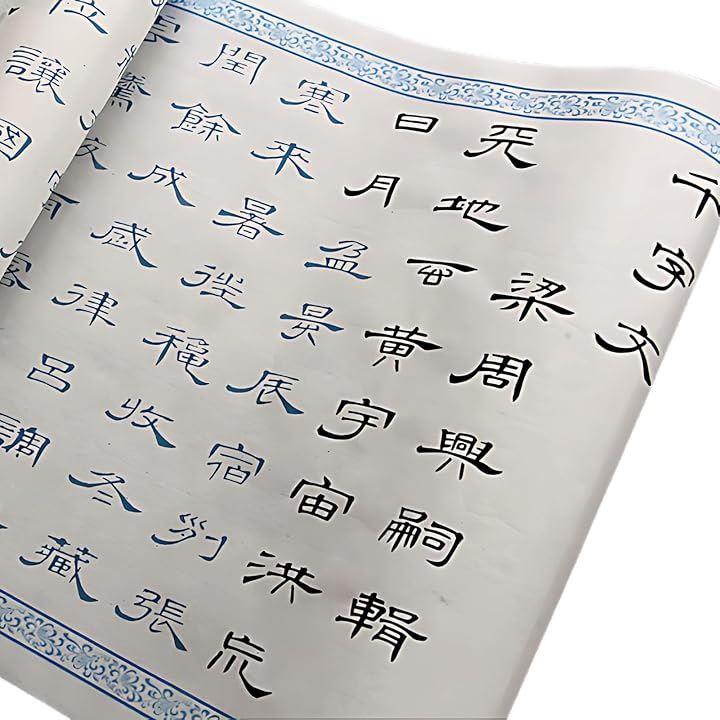 千字文
梁周興嗣輯
天地玄黃宇宙洪荒
日月盈昃辰宿列張
寒來暑往穐收冬藏
閏餘成歲律呂調
雲騰
位讓國